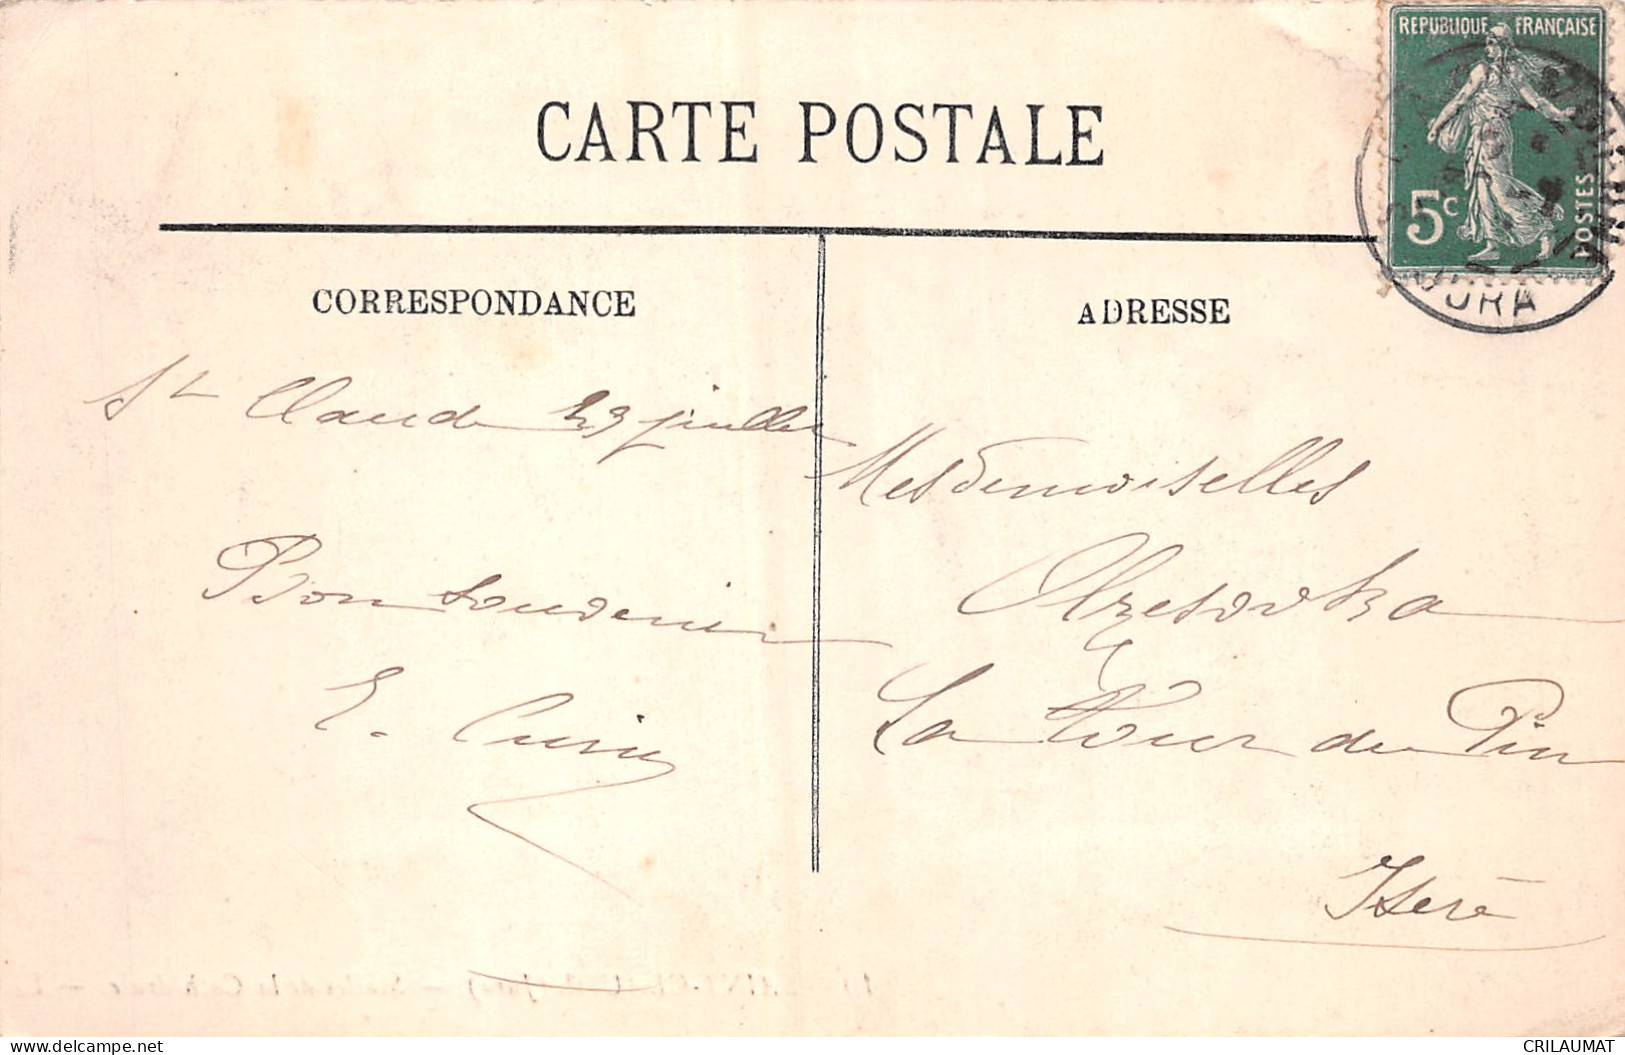 RÉPUBLIQUE FRANÇAISE
5c
POSTES
JURA
CARTE POSTALE
CORRESPONDANCE
ADRESSE
St Claude 23 juillet
Bon Souvenir
E.
Mesdemoiselles
La Tour du Pin
Isère
delcampe.net
CRILAUMAT